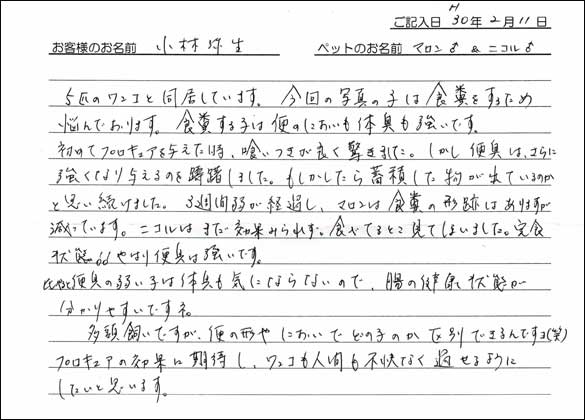 ご記入日 H30年2月11日
お客様のお名前 小林弥生 ペットのお名前 マロン♂ & ニコル♂
5匹のワンコと同居しています。今回の写真の子は食糞をするため
悩んでおります。食糞する子は便のにおいも体臭も強いです。
初めてプロキュアを与えた時、喰いつきが良く驚きました。しかし便臭は、さらに
強くなり与えるのを躊躇しました。もしかしたら蓄積した物が出ているのか
と思い続けました。3週間弱が経過し、マロンは食糞の形跡はありますが
減っています。ニコルはまだ効果みられず。食べてるとこ見てしまいました。完食
状態 やはり便臭は強いです。
便臭の弱い子は体臭も気にならないので、腸の健康状態が
分かりやすいですネ。
多頭飼いですが、便の形やにおいでどの子のか区別できるんですヨ(笑)
プロキュアの効果に期待し、ワンコも人間も不快なく過せるように
したいと思います。